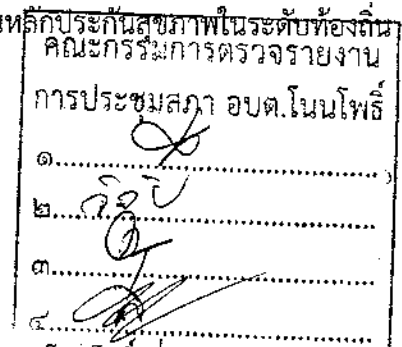 หลักประกันสุขภาพในระดับท้องถิ่น
คณะกรรมการตรวจรายงาน
การประชุมสภา อบต.โนนโพธิ์
๑.............................
๒.............................
๓.............................
๔.............................